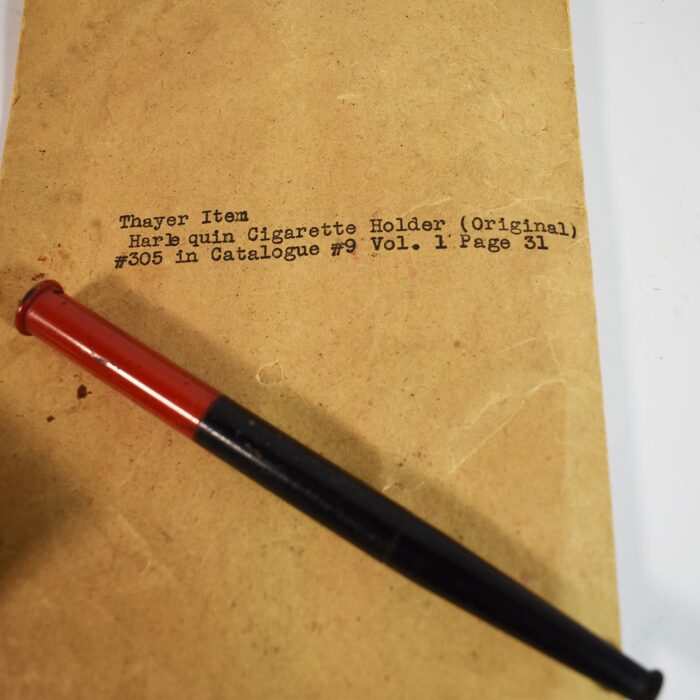 Thayer Item
Harlequin Cigarette Holder (Original)
#305 in Catalogue #9 Vol. 1 Page 31